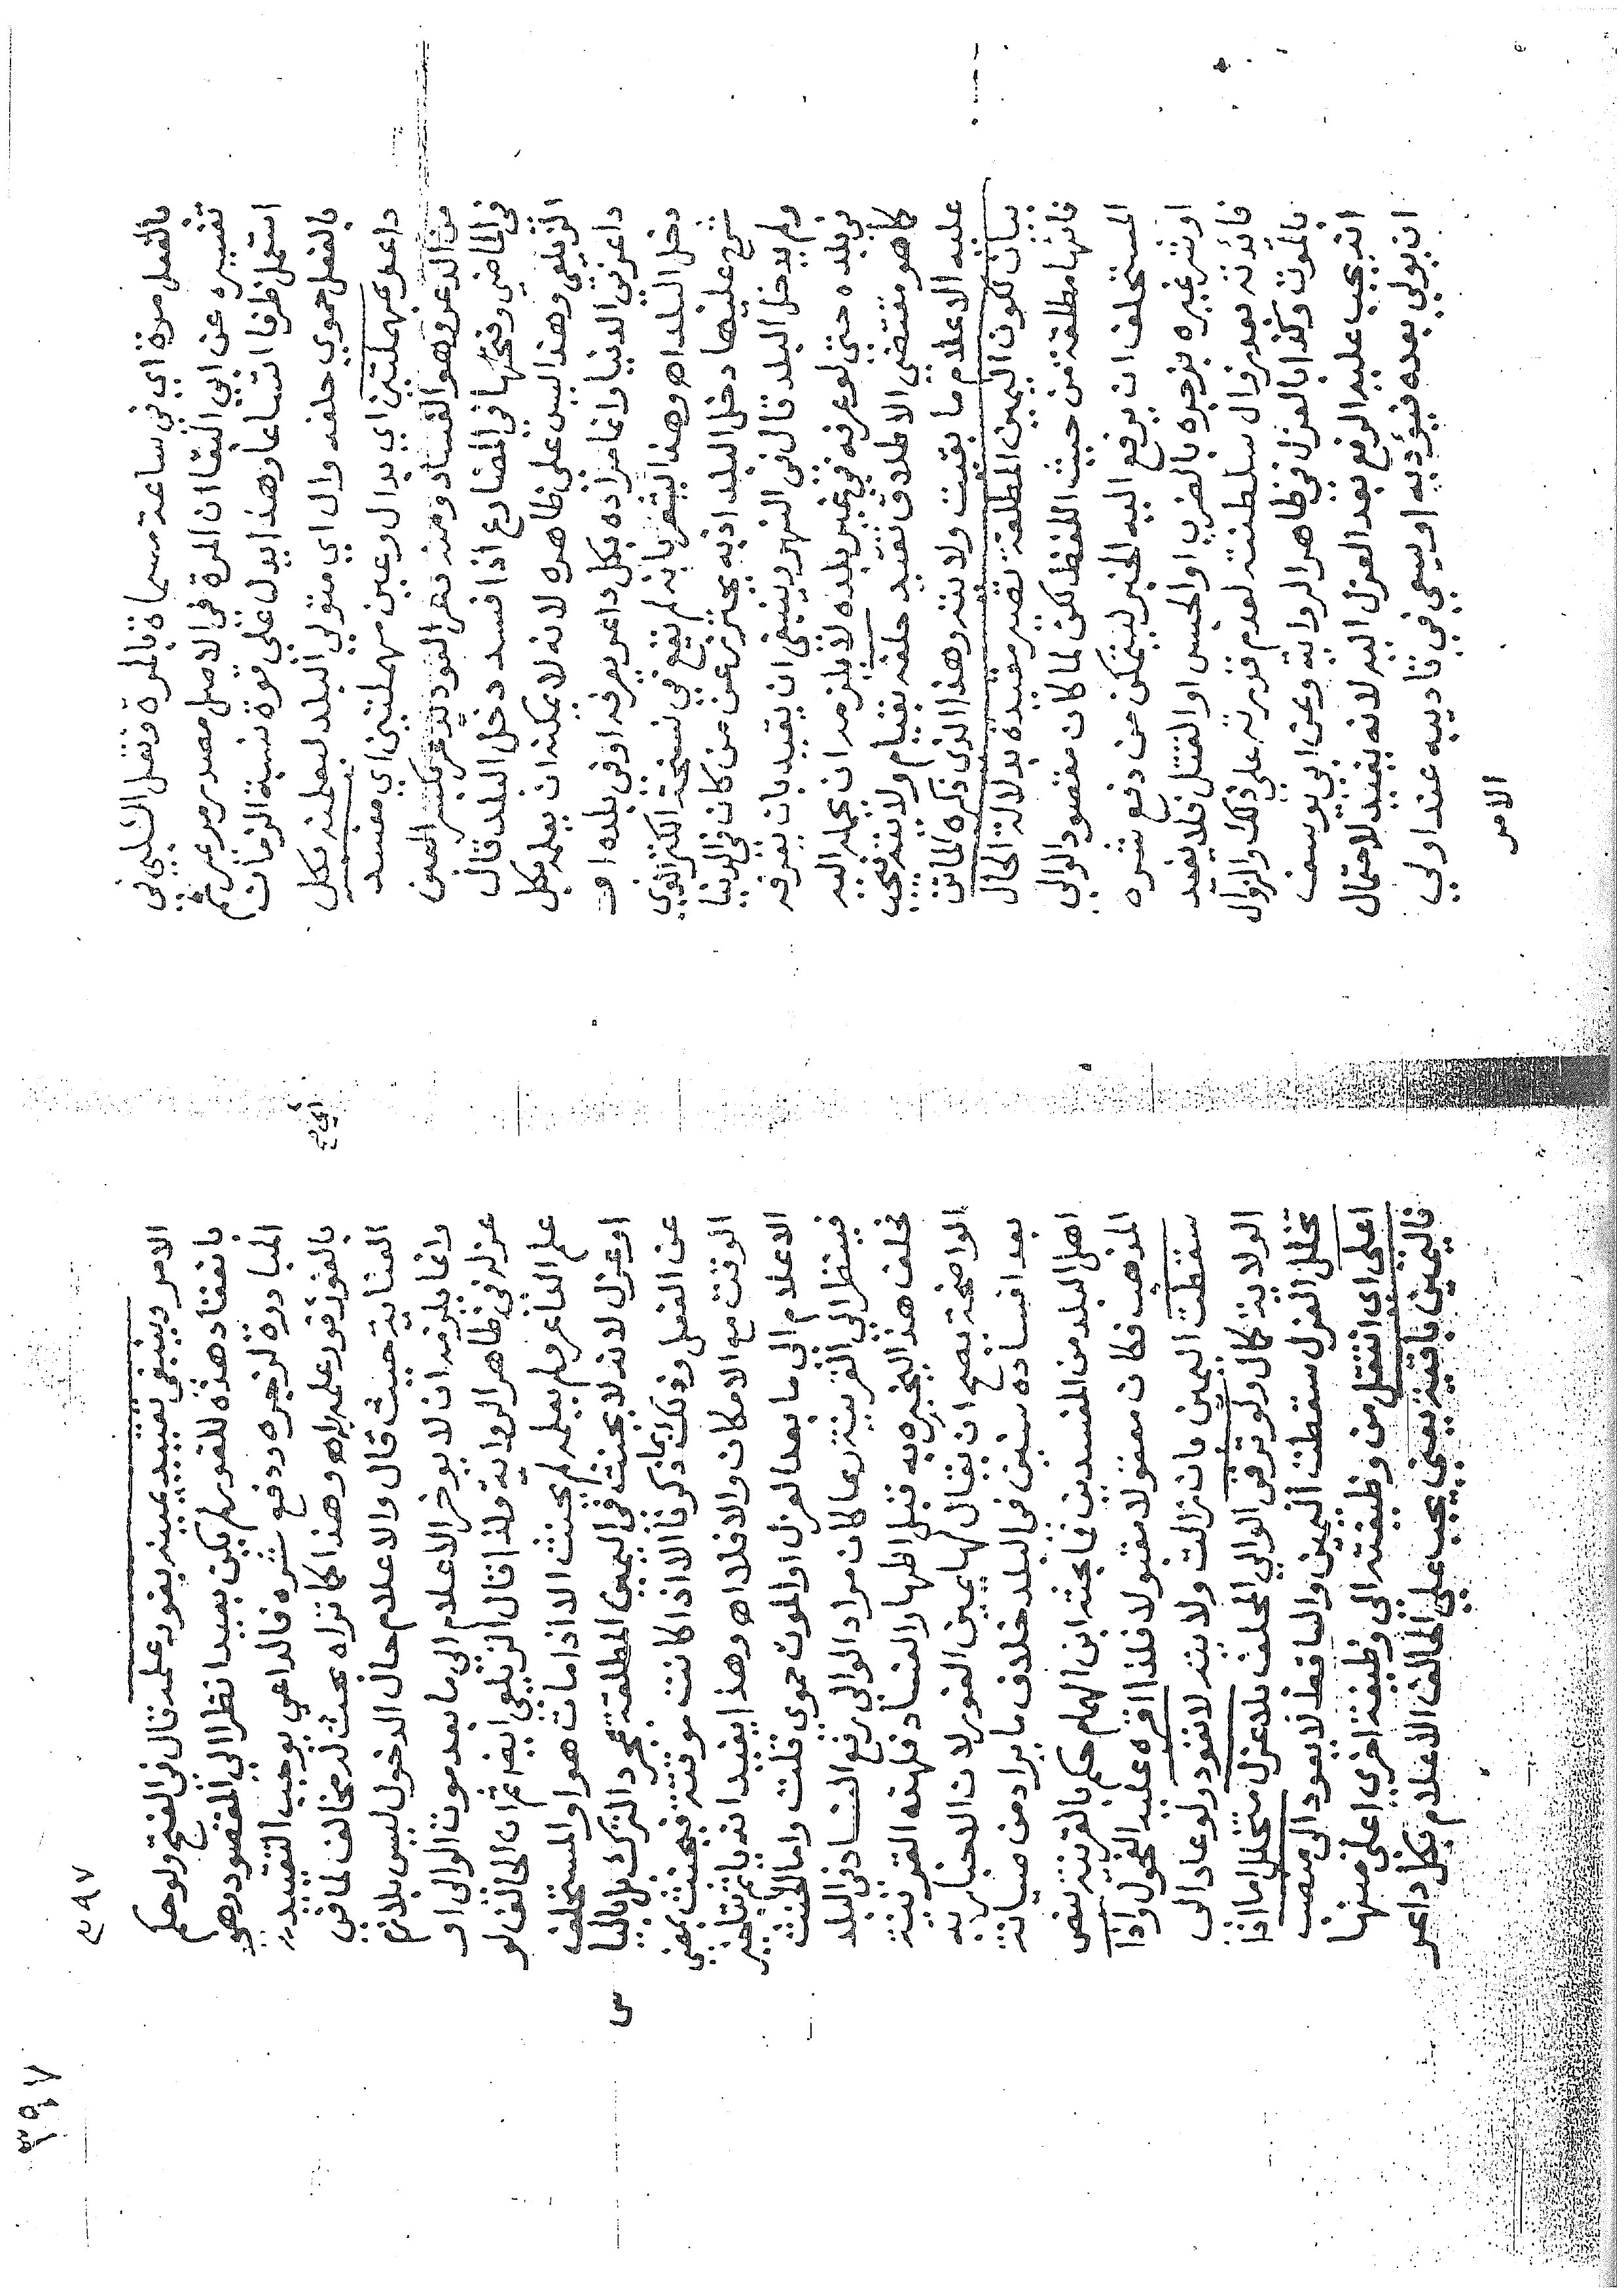 بالفعل مرة اي في ساعة مسماة بالمرة ونقل الشلبي في
تفسيره عن ابي البقا ان المرة في الاصل مصدر مر يمر ثم
استعمل ظرفا اتساعا وهذا يدل على قوة نسبة الزمان
بالفعل حموي حلفه وال اي متولي البلد ليعلمنه بكل
داعر بمهملتين اي بدال وعين مهملتين اي مفسد
من الدعر وهو الفساد ومنه دعر العود يدعر بكسر العين
في الماضي وفتحها في المضارع اذا فسد دخل البلد قال
الزيلعي وهذا ليس على ظاهره لانه لا يمكنه ان يعلمه بكل
داعر في الدنيا وانما مراده بكل داعر يعرفه او في بلده او
دخل البلد اه وهذا يشعر بانه لم يقع في نسخة الكنز التي
شرح عليها دخل البلد اذ به يحترز عن من كان في الدنيا
ولم يدخل البلد قال في النهر وينبغي ان يقيد بان يعرفه
في بلده حتى لو عرفه في غير بلده لا يلزمه ان يحمله اليه
كما هو مقتضى الاطلاق تقيد حلفه بقيام ولايته فيجب
عليه الاعلام ما بقيت ولايته وهذا الذي ذكره الماتن
بيان لكون اليمين المطلقة تصير مقيدة بدلالة الحال
فانها مطلقة من حيث اللفظ لكن لما كان مقصود الوالي
المستحلف ان يرفع اليه الخبر ليتمكن من دفع شره
او شر غيره بزجره بالضرب او الحبس او القتل فلا يفيد
فائدته بعد زوال سلطنته لعدم قدرته على ذلك والزوال
بالموت وكذا بالعزل في ظاهر الرواية وعن ابي يوسف
انه يجب عليه الرفع بعد العزل اليه لانه يفيد لاحتمال
ان يولي بعده فيؤديه او يسعى في تاديبه عند اولي
الامر
٣٩٧
٣٩٧
الامر وينبغي تقييد يمينه بفور علمه قال في الفتح ولو حكم
بانعقاد هذه للفور لم يكن بعيدا نظرا الى المقصود وهي
المبادرة لزجره ودفع شره فالداعي يوجب التقييد
بالفور فور علمه به اه وهذا كما تراه بحث له مخالف لما في
العناية حيث قال والاعلام حال الدخول ليس بلازم
وانما يلزمه ان لا يوخر الاعلام الى ما بعد موت الوالي او
عزله في ظاهر الرواية ولذا قال الزيلعي ايضا ثم ان الحالف لو
علم الداعر ولم يعلمه لم يحنث الا اذا مات هو او المستحلف
او عزل لانه لا يحنث في اليمين المطلقة بمجرد الترك بل بالياس
عن الفعل وذلك بما ذكرنا الا اذا كانت موقتة فيحنث بمضي
الوقت مع الامكان والا فلا اه وهذا يفيد انه ياثم بتاخير
الاعلام الى ما بعد العزل او الموت حموي قلت واما الحنث
فينظر الى القرينة ربما كان مراد الوالي رفع الفساد في البلد
فحلف هذا ليخبره به قبل اظهار الفساد فهذه القرينة
الواضحة يصح ان يقال لها يمين الفور لان الاخبار به
بعد افساده سنين في البلد خلاف ما يراد من صيانة
اهل البلد من المفسدين فابحثه ابن الهمام حكم بالقرينة بنص
المذهب فكان معقولا مقبولا فلذا اقره عليه الفحول واذا
سقطت اليمين بان زالت ولايته لا تعود ولو عاد الى
الولاية كمال ولو ترقى الوالي المحلف بلا عزل متخلل اما اذا
تخلل العزل سقطت اليمين والساقط لا يعود الى منصب
اعلى اي انتقل من وظيفته الى وظيفة اخرى اعلى منها
فاليمين باقية يعني يجب على الحالف الاعلام بكل داعر